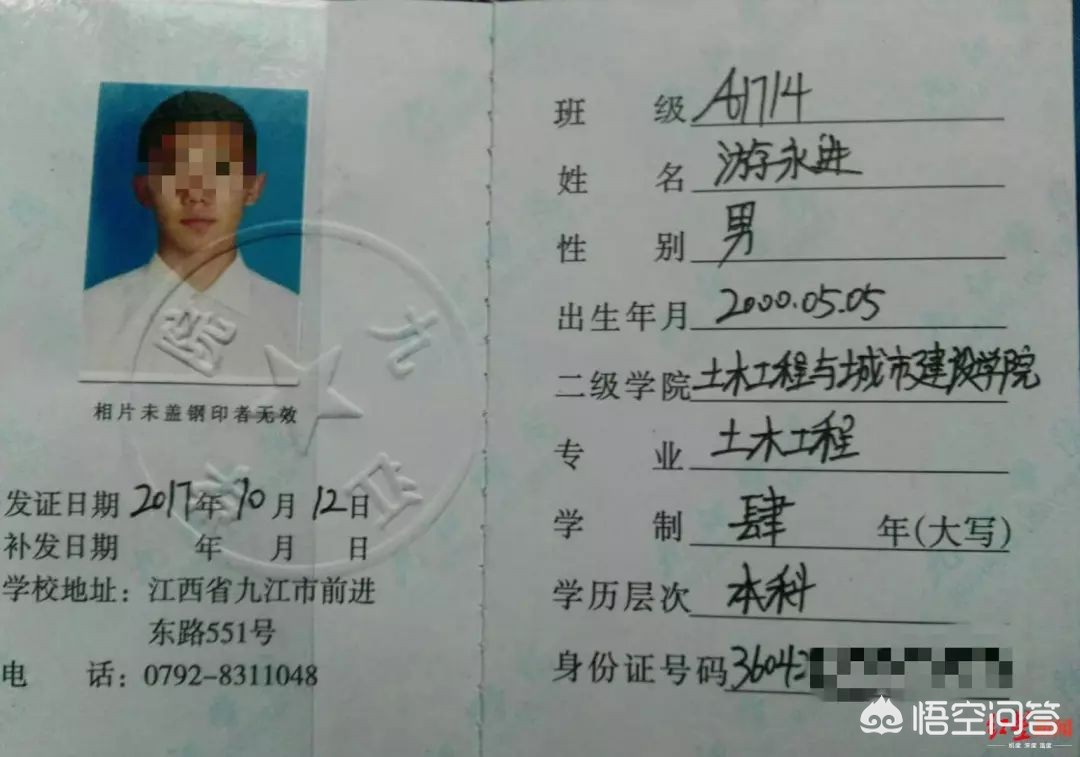 相片未盖钢印者无效
发证日期 2017年10月12日
补发日期 年 月 日
学校地址：江西省九江市前进
东路551号
电 话：0792-8311048
班 级 A1714
姓 名 游永进
性 别 男
出生年月 2000.05.05
二级学院 土木工程与城市建设学院
专 业 土木工程
学 制 肆 年(大写)
学历层次 本科
身份证号码 36042
九江学院
悟空问答